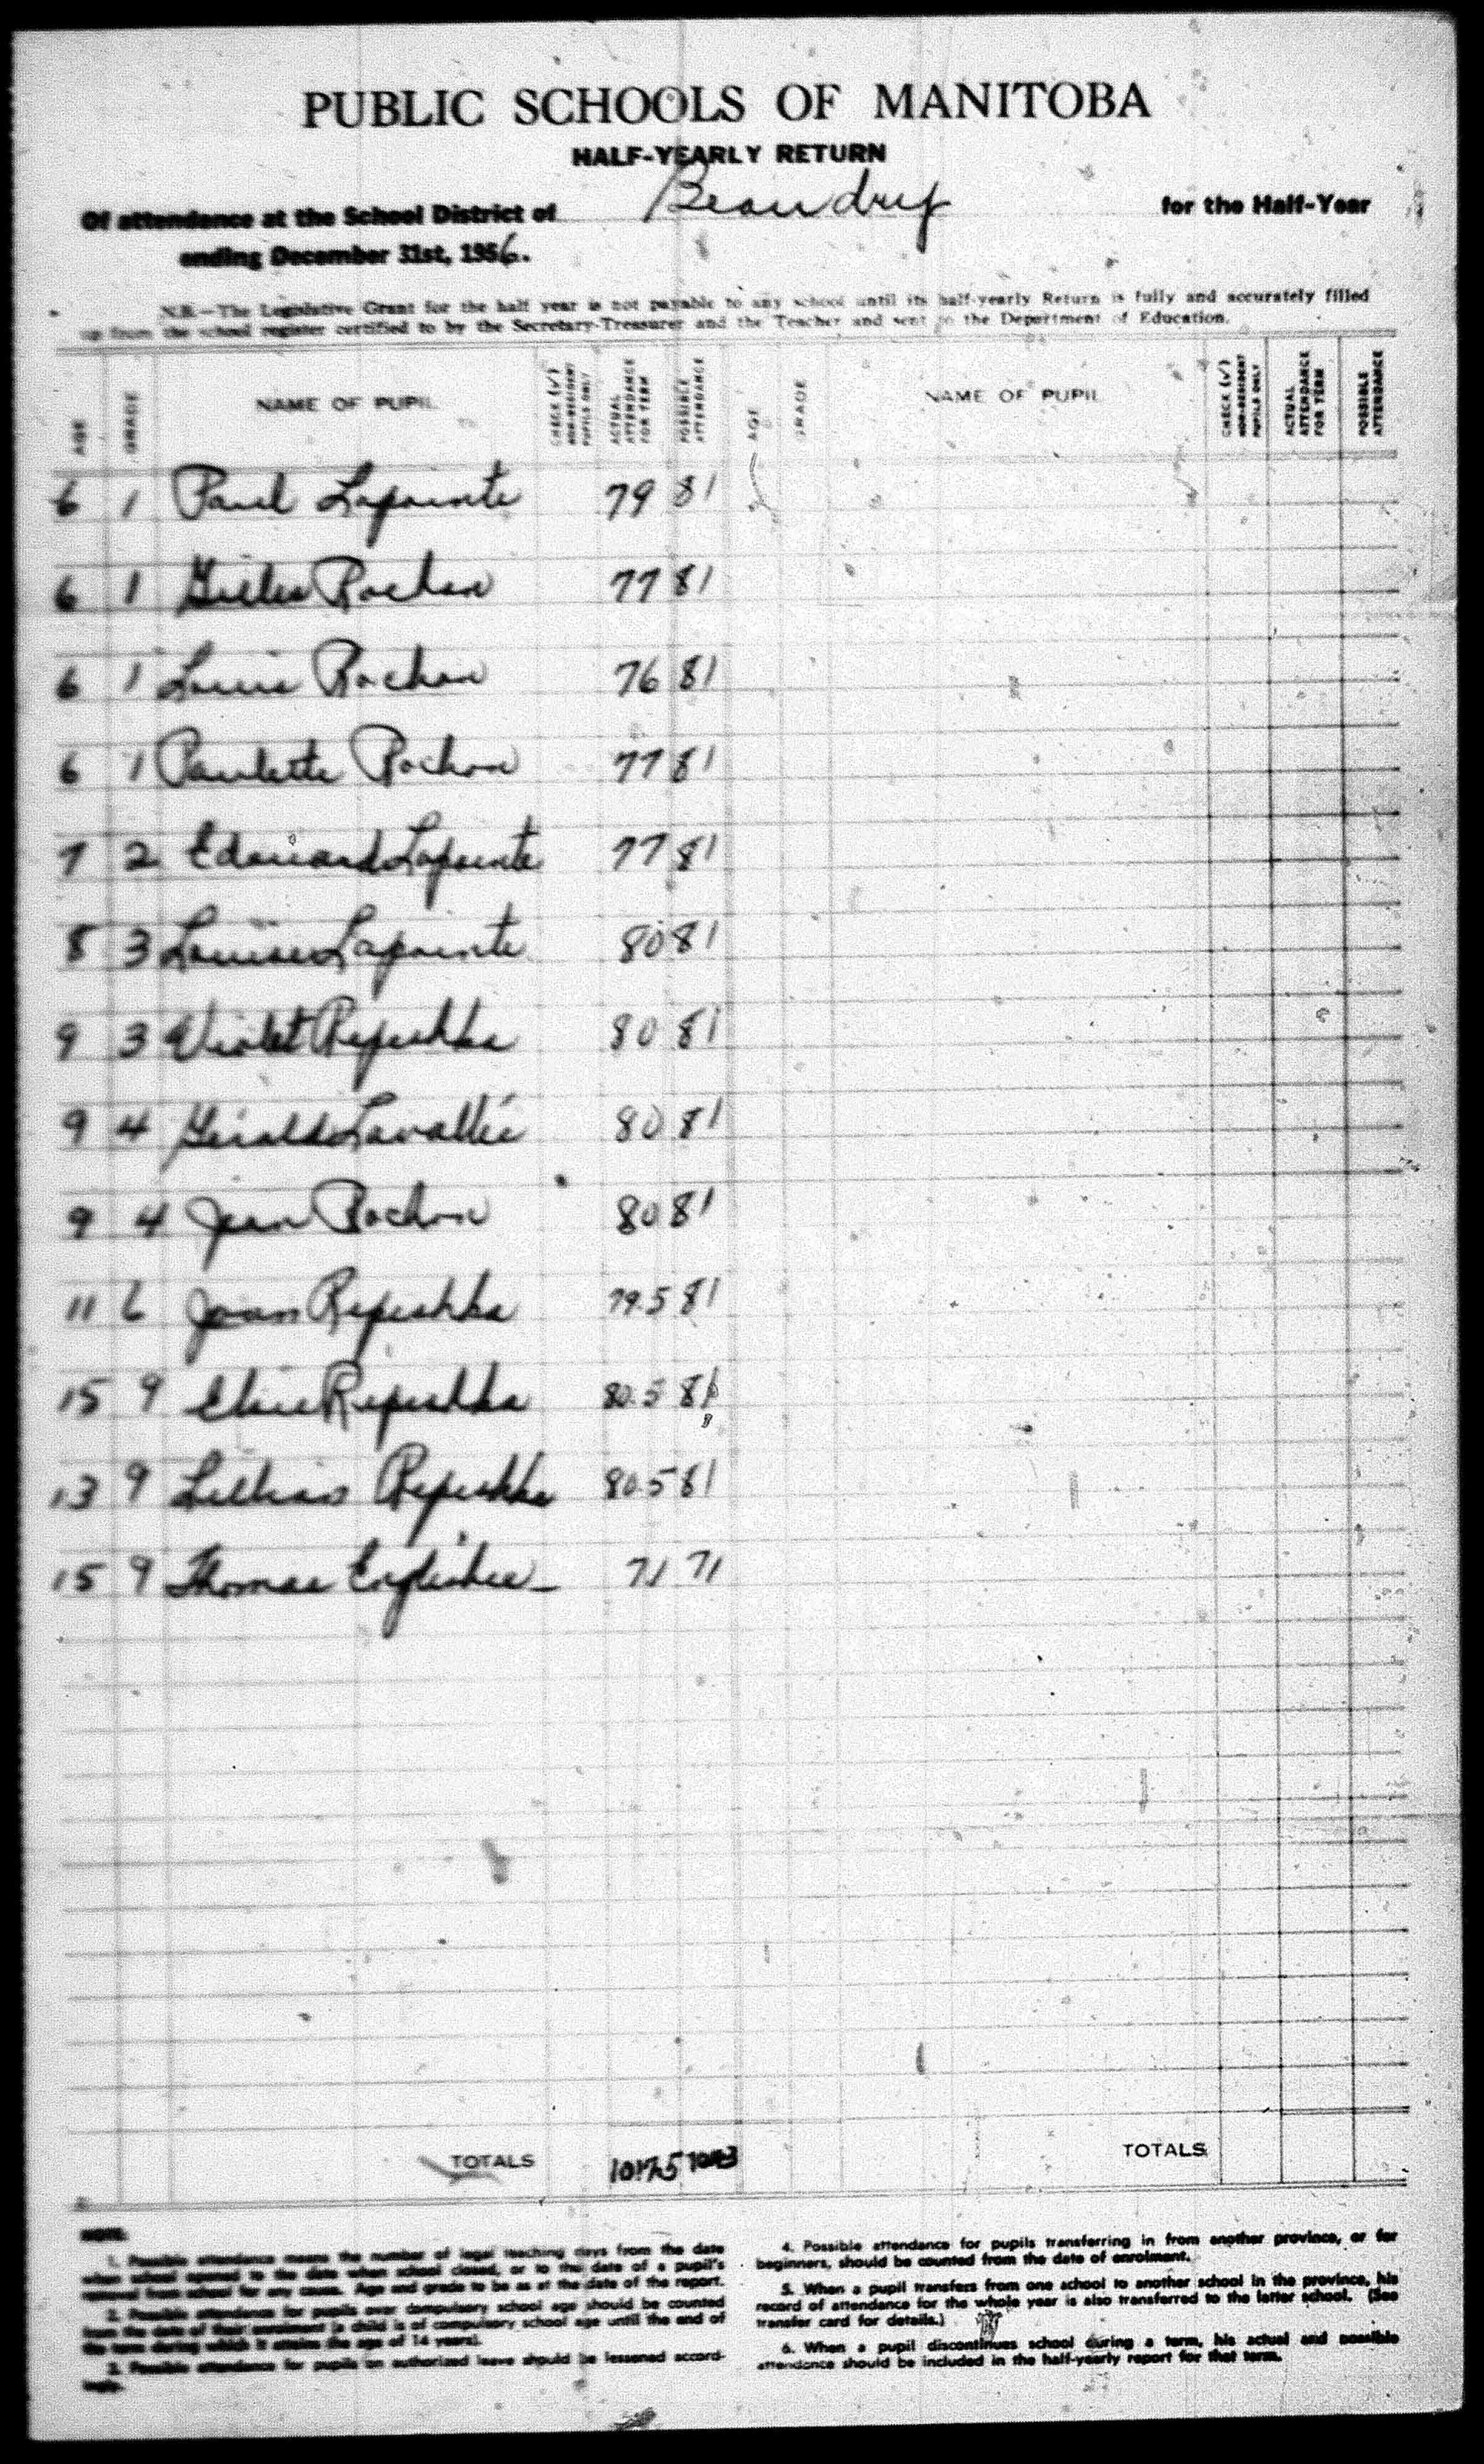 PUBLIC SCHOOLS OF MANITOBA
HALF-YEARLY RETURN
Of attendance at the School District of Beaudry for the Half-Year
ending December 31st, 1956.
N.B.—The Legislative Grant for the half year is not payable to any school until its half-yearly Return is fully and accurately filled
up from the school register certified to by the Secretary-Treasurer and the Teacher and sent to the Department of Education.
AGE GRADE NAME OF PUPIL CHECK (√) NON-RESIDENT PUPILS ONLY ACTUAL ATTENDANCE FOR TERM POSSIBLE ATTENDANCE AGE GRADE NAME OF PUPIL CHECK (√) NON-RESIDENT PUPILS ONLY ACTUAL ATTENDANCE FOR TERM POSSIBLE ATTENDANCE
6 1 Paul Lapointe 79 81
6 1 Gilles Rochon 77 81
6 1 Louis Rochon 76 81
6 1 Paulette Rochon 77 81
7 2 Edouard Lapointe 77 81
8 3 Louise Lapointe 80 81
9 3 Violet Repushka 80 81
9 4 Lavallée 80 81
9 4 Jean Rochon 80 81
11 6 Joan Repushka 79.5 81
15 9 Elsie Repushka 80.5 81
13 9 Lillian Repushka 80.5 81
15 9 Thomas 71 71
TOTALS 1017.5 1043 TOTALS
NOTE.
1. Possible attendance means the number of legal teaching days from the date
when school opened to the date when school closed, or to the date of a pupil's
removal from school for any cause. Age and grade to be as at the date of the report.
2. Possible attendance for pupils over compulsory school age should be counted
from the date of their enrolment (a child is of compulsory school age until the end of
the term during which it attains the age of 14 years).
3. Possible attendance for pupils on authorized leave should be lessened accord-
ingly.
4. Possible attendance for pupils transferring in from another province, or for
beginners, should be counted from the date of enrolment.
5. When a pupil transfers from one school to another school in the province, his
record of attendance for the whole year is also transferred to the latter school. (See
transfer card for details.)
6. When a pupil discontinues school during a term, his actual and possible
attendance should be included in the half-yearly report for that term.